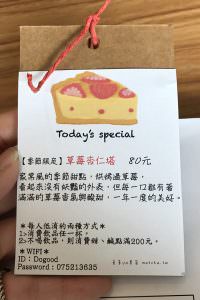 Today's special
【季節限定】草莓杏仁塔 80元
家常風的季節甜點，烘焙過草莓，
看起來沒有妖豔的外表，但每一口都有著
滿滿的草莓香氣與酸甜，一年一度的美好。
＊每人低消的兩種方式＊
1>消費飲品任一杯。
2>不喝飲品，則消費甜、鹹點滿200元。
＊WIFI＊
ID：Dogood
Password：075213635